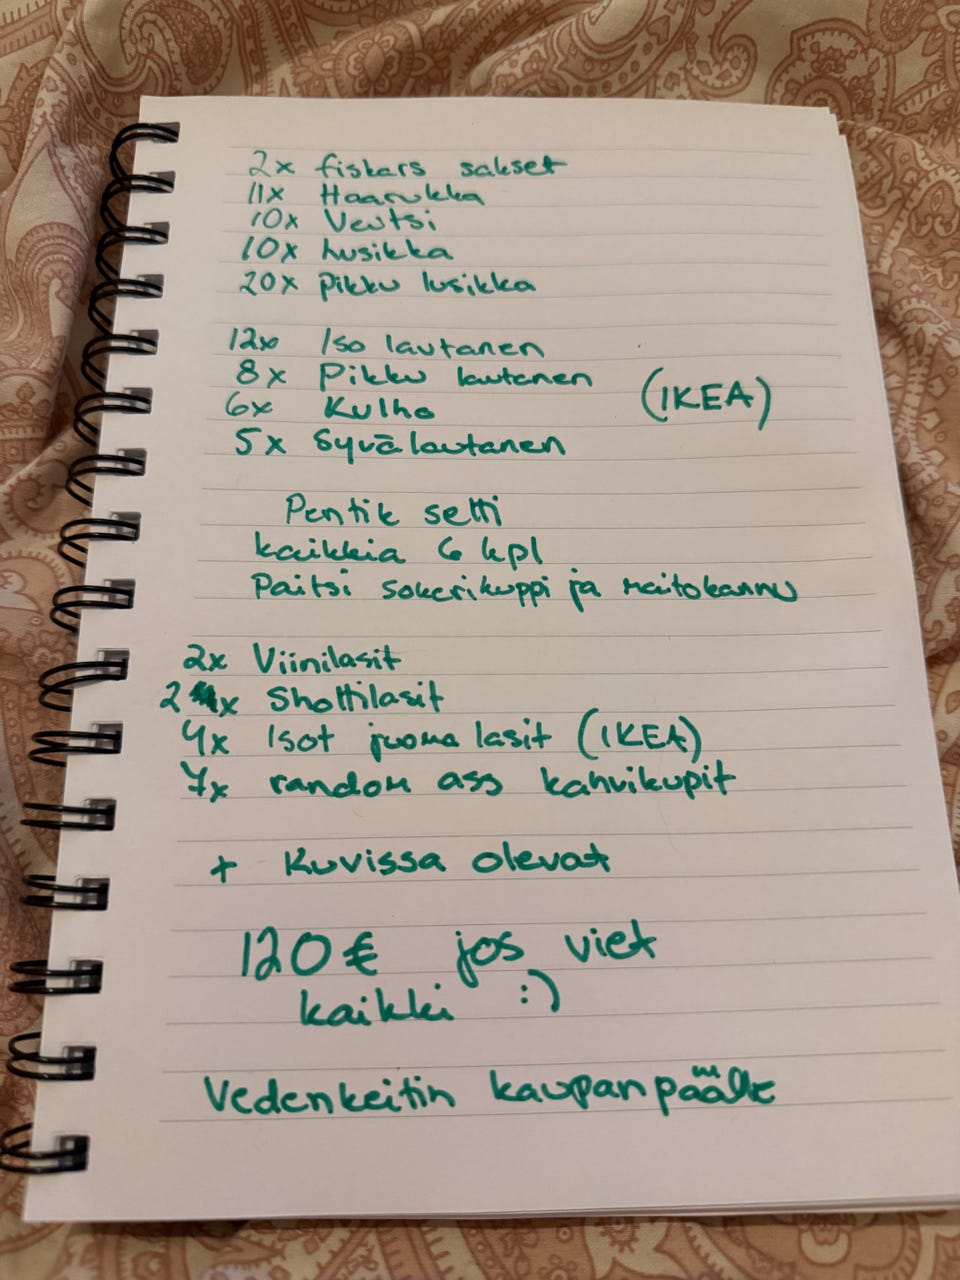 2x fiskars sakset
11x Haarukka
10x Veitsi
10x lusikka
20x pikku lusikka
12x Iso lautanen
8x Pikku lautanen (IKEA)
6x Kulho
5x Syvä lautanen
Pentik setti
kaikkia 6 kpl
Paitsi sokerikuppi ja maitokannu
2x Viinilasit
2x Shottilasit
4x Isot juoma lasit (IKEA)
7x random ass kahvikupit
+ Kuvissa olevat
120€ jos viet
kaikki :)
Vedenkeitin kaupanpäälle